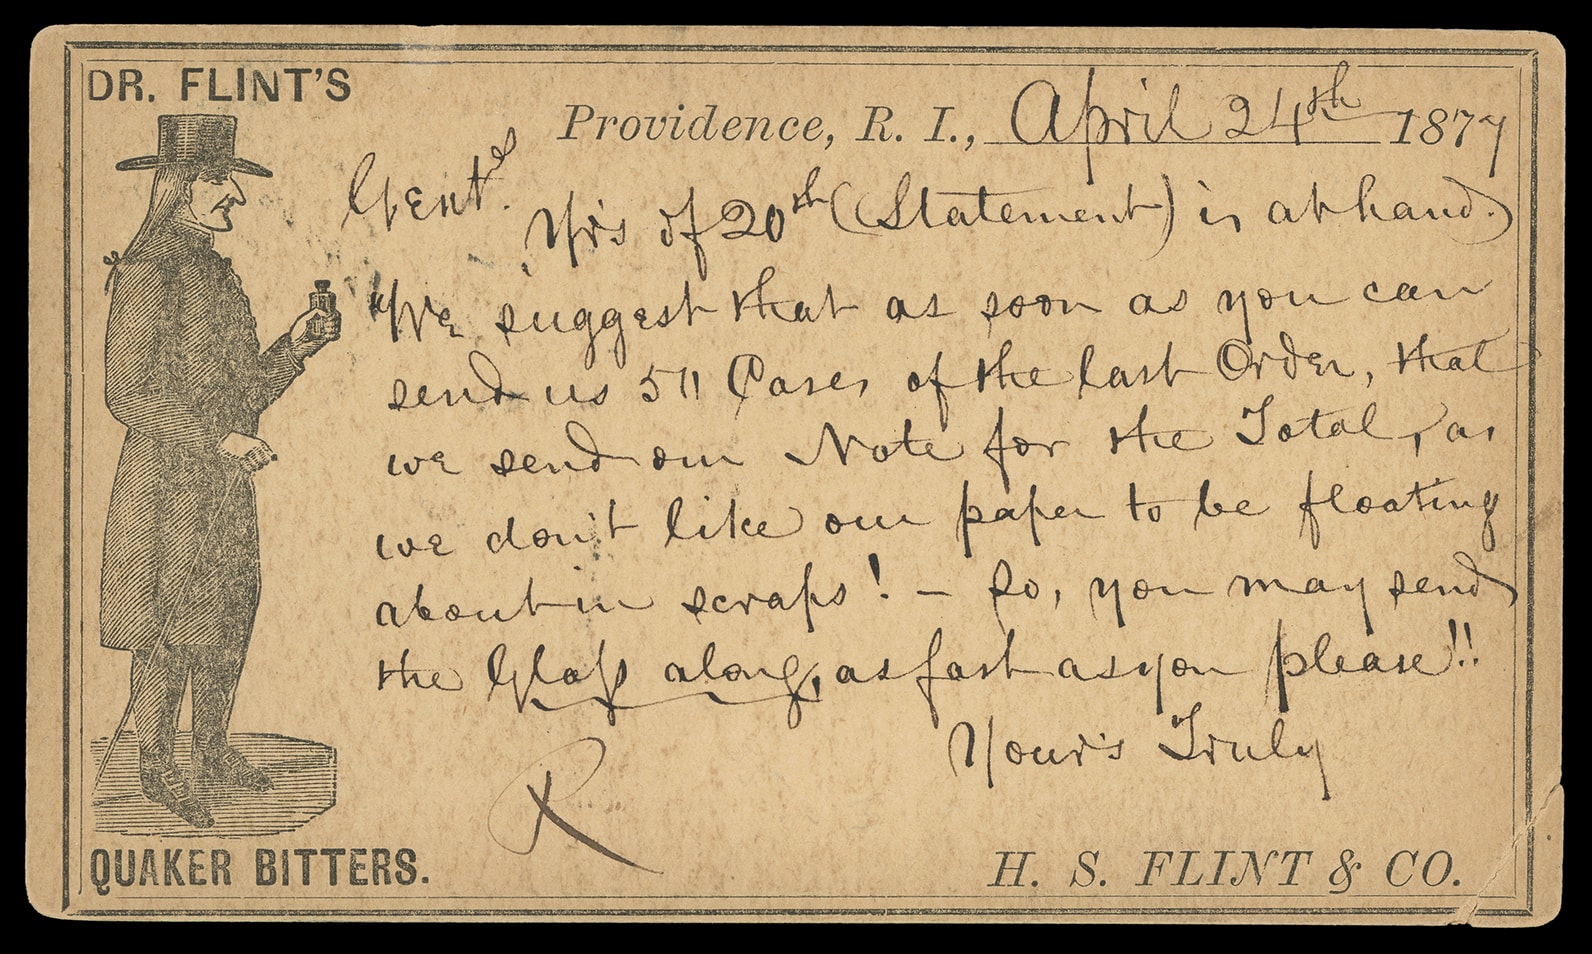 DR. FLINT'S
Providence, R. I., April 24th 1877
Gents.
Yr's of 20th (Statement) is at hand.
We suggest that as soon as you can
send us 511 Cases of the last Order, that
we send our Note for the Total, as
we don't like our paper to be floating
about in scraps! - So, you may send
the Glass along, as fast as you please!!
Your's Truly
R
QUAKER BITTERS.
H. S. FLINT & CO.